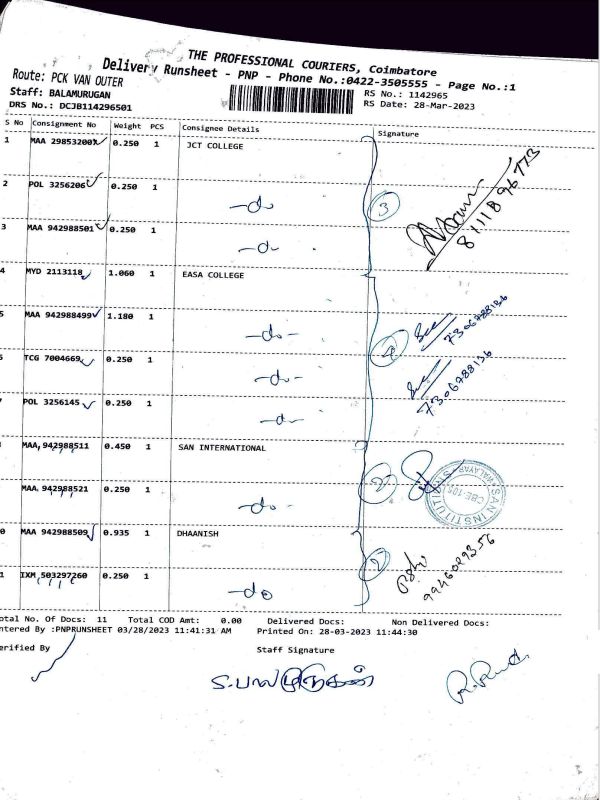 THE PROFESSIONAL COURIERS, Coimbatore
Delivery Runsheet - PNP - Phone No.:0422-3505555 - Page No.:1
Route: PCK VAN OUTER
Staff: BALAMURUGAN
RS No.: 1142965
DRS No.: DCJB114296501
RS Date: 28-Mar-2023
S No Consignment No Weight PCS Consignee Details Signature
1 MAA 298532007 0.250 1 JCT COLLEGE
2 POL 3256206 0.250 1
-do-
3
3 MAA 942988501 0.250 1
-do-
8111896773
4 MYD 2113118 1.060 1 EASA COLLEGE
5 MAA 942988499 1.180 1
-do-
7306788136
TCG 7004669 0.250 1
-do-
7306788136
POL 3256145 0.250 1
-do-
MAA 942988511 0.450 1 SAN INTERNATIONAL
MAA 942988521 0.250 1
-do-
2
SAN INSTITUTI
WALAYAR
CBE-105
0 MAA 942988509 0.935 1 DHAANISH
2
1 IXM 503297260 0.250 1
-do-
otal No. Of Docs: 11 Total COD Amt: 0.00 Delivered Docs: Non Delivered Docs:
ntered By :PNPRUNSHEET 03/28/2023 11:41:31 AM Printed On: 28-03-2023 11:44:30
erified By Staff Signature
S. பாலமுருகன்